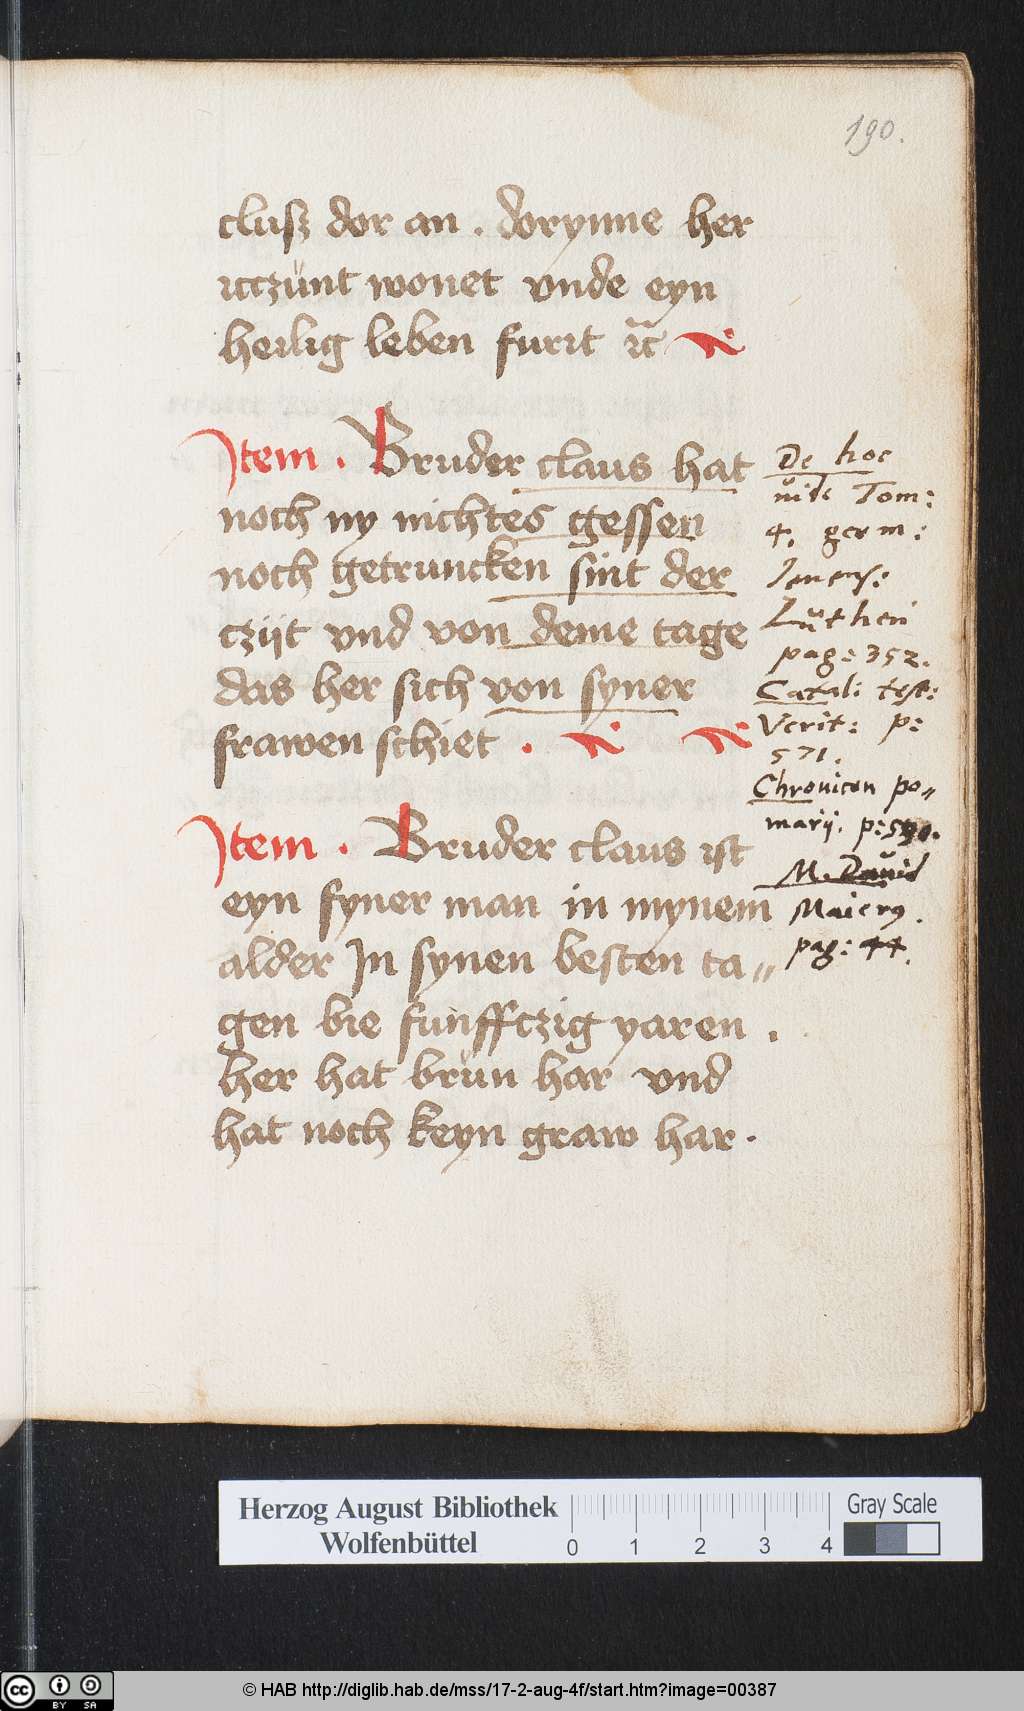 190.
clusz dor an . dorynne her
itczünt wonet vnde eyn
heilig leben furit ꝛc̃
Item . Bruder claus hat
noch ny nichtes gessen
noch getruncken sint der
czijt vnd von deme tage
das her sich von syner
frawen schiet .
Item . Bruder claus ist
eyn fyner man in mynem
alder In synen besten ta〃
gen bie funffczig yaren .
her hat brün har vnd
hat noch keyn graw har .
De hoc
uide Tom:
4. germ:
Jenens:
Lutheri
pag: 352.
Catal: test:
Verit: p:
571.
Chronicon po〃
marij. p:
M. Dauid
Maierꝰ.
pag: 44.
Herzog August Bibliothek
Wolfenbüttel
0 1 2 3 4
Gray Scale
cc BY SA
© HAB http://diglib.hab.de/mss/17-2-aug-4f/start.htm?image=00387